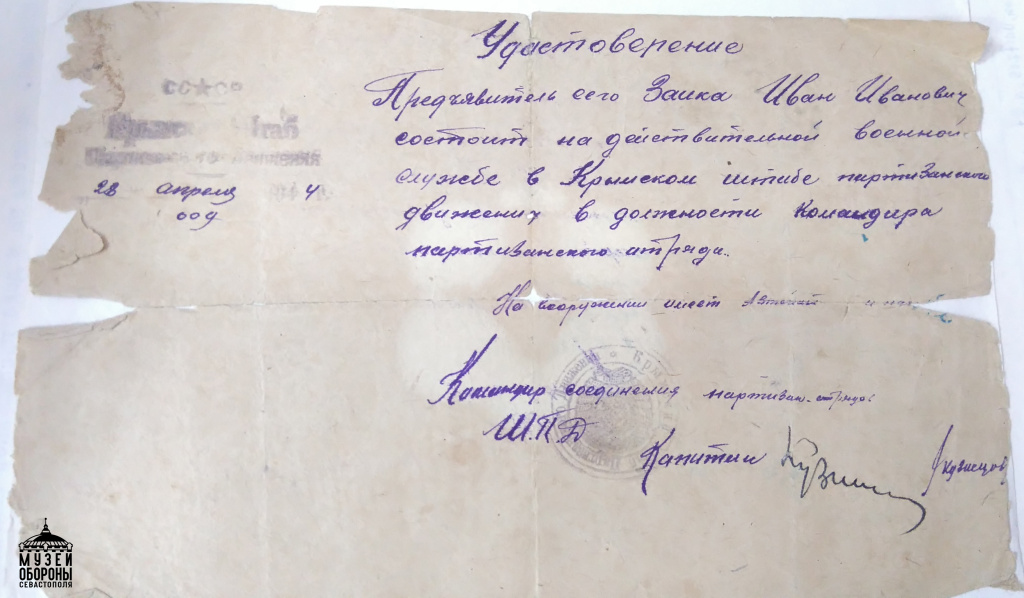 Удостоверение
СС★СР
Крымский Штаб
28 апреля 4
009
Предъявитель сего Заика Иван Иванович
состоит на действительной военной
службе в Крымском штабе партизанского
движения в должности командира
партизанского отряда.
На вооружении имеет
Командир соединения партизан. отрядов
Ш.П.Д
Капитан
/Кузнецов
МУЗЕЙ
ОБОРОНЫ
СЕВАСТОПОЛЯ